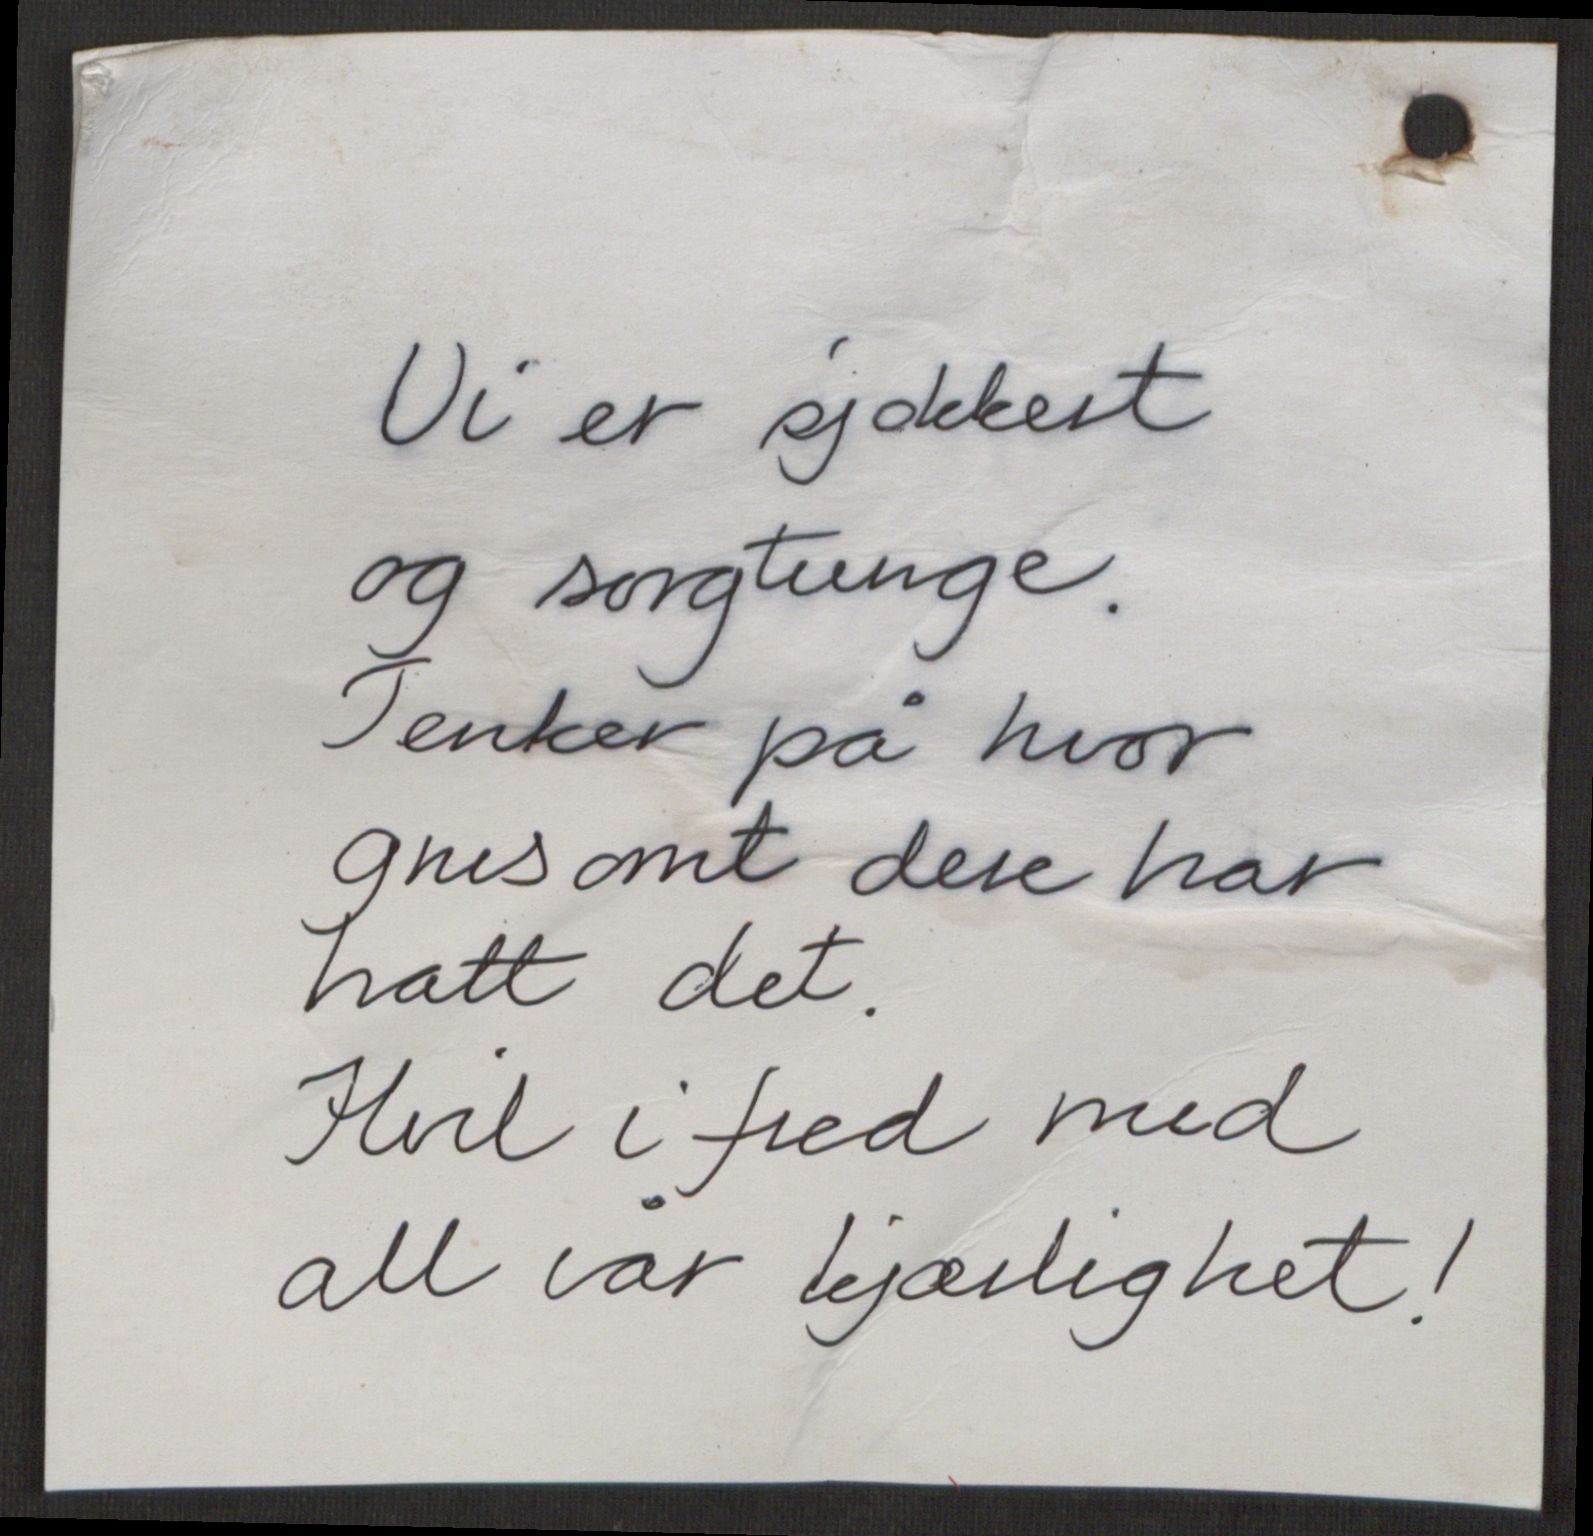 Vi er sjokkert
og sorgtunge.
Tenker på hvor
grusomt dere har
hatt det.
Hvil i fred med
all vår kjærlighet!